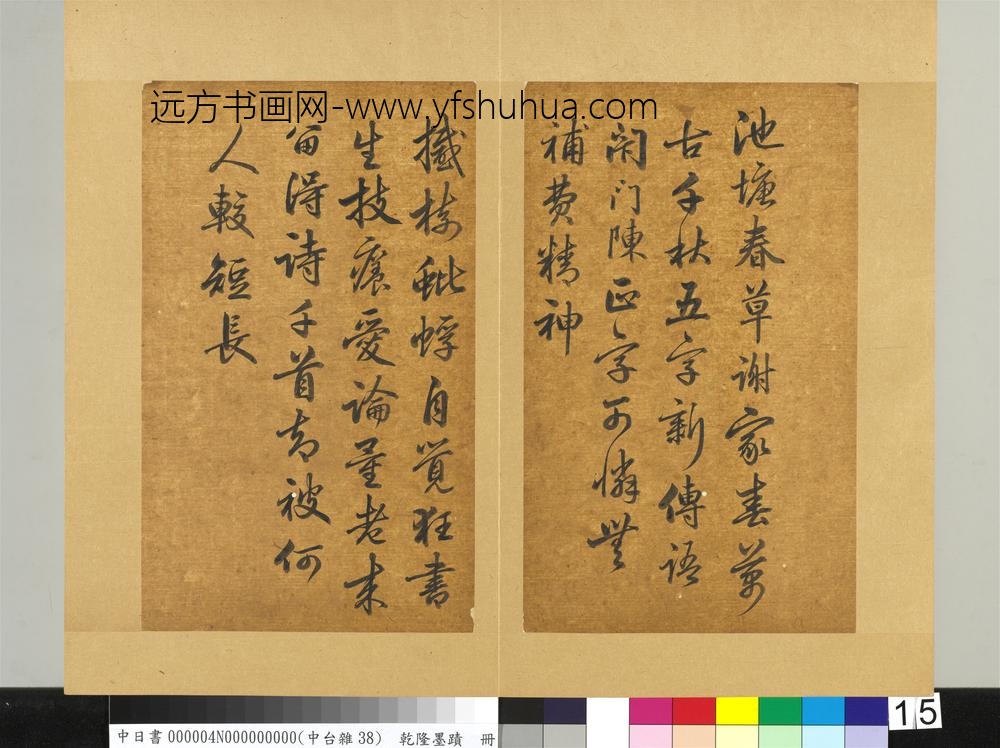 远方书画网-www.yfshuhua.com
池塘春草謝家春萬
古千秋五字新傳語
閉门陳正字可憐無
補費精神
撼樹蚍蜉自覺狂書
生技癢愛論量老来
留得詩千首却被何
人較短長
15
中日書000004N000000000(中台雜38) 乾隆墨蹟 冊